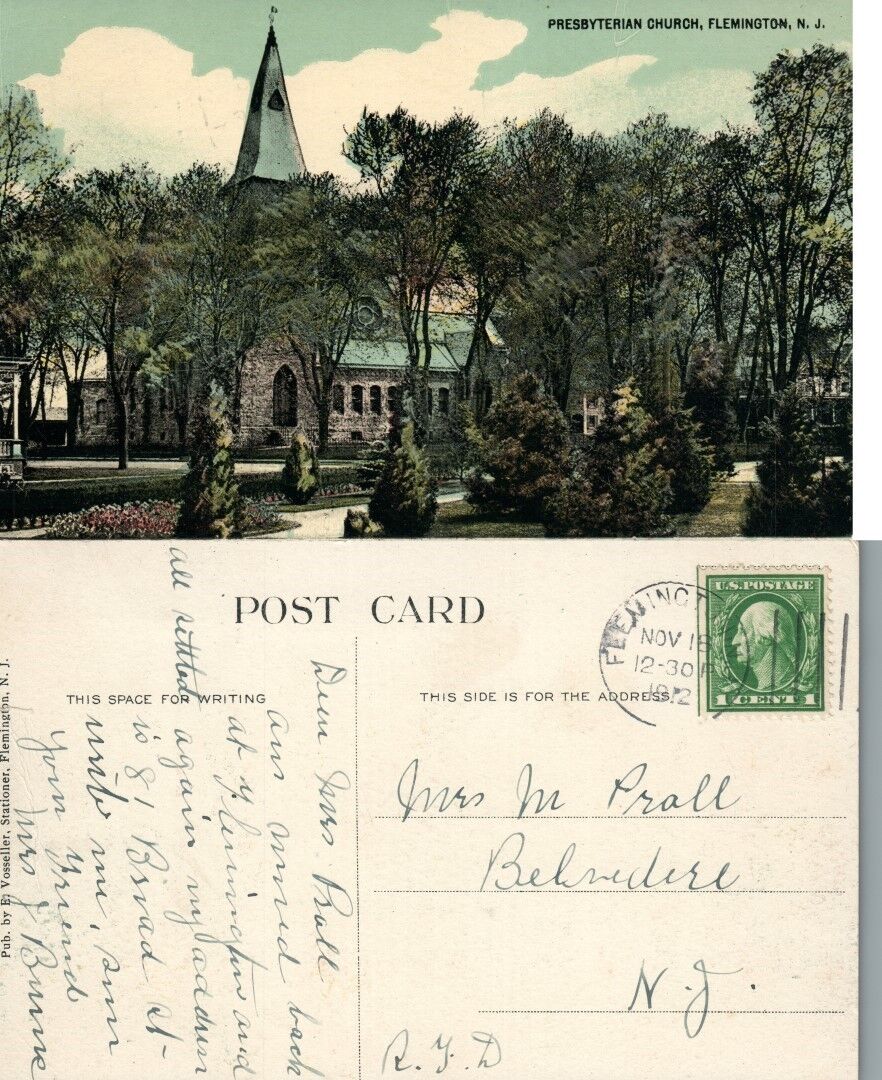 PRESBYTERIAN CHURCH, FLEMINGTON, N. J.
POST CARD
THIS SPACE FOR WRITING
THIS SIDE IS FOR THE ADDRESS
Pub. by E. Vosseller, Stationer, Flemington, N. J.
FLEMINGT
NOV 18
12-30 P
1912
U.S. POSTAGE
1 CENT 1
Dear Mrs. Prall
Am moved back
at Flemington and
all settled again my address
is 81 Broad St
write me,
Your Friend
Mrs J
Mrs M Prall
Belvedere
N. J.
R. F. D